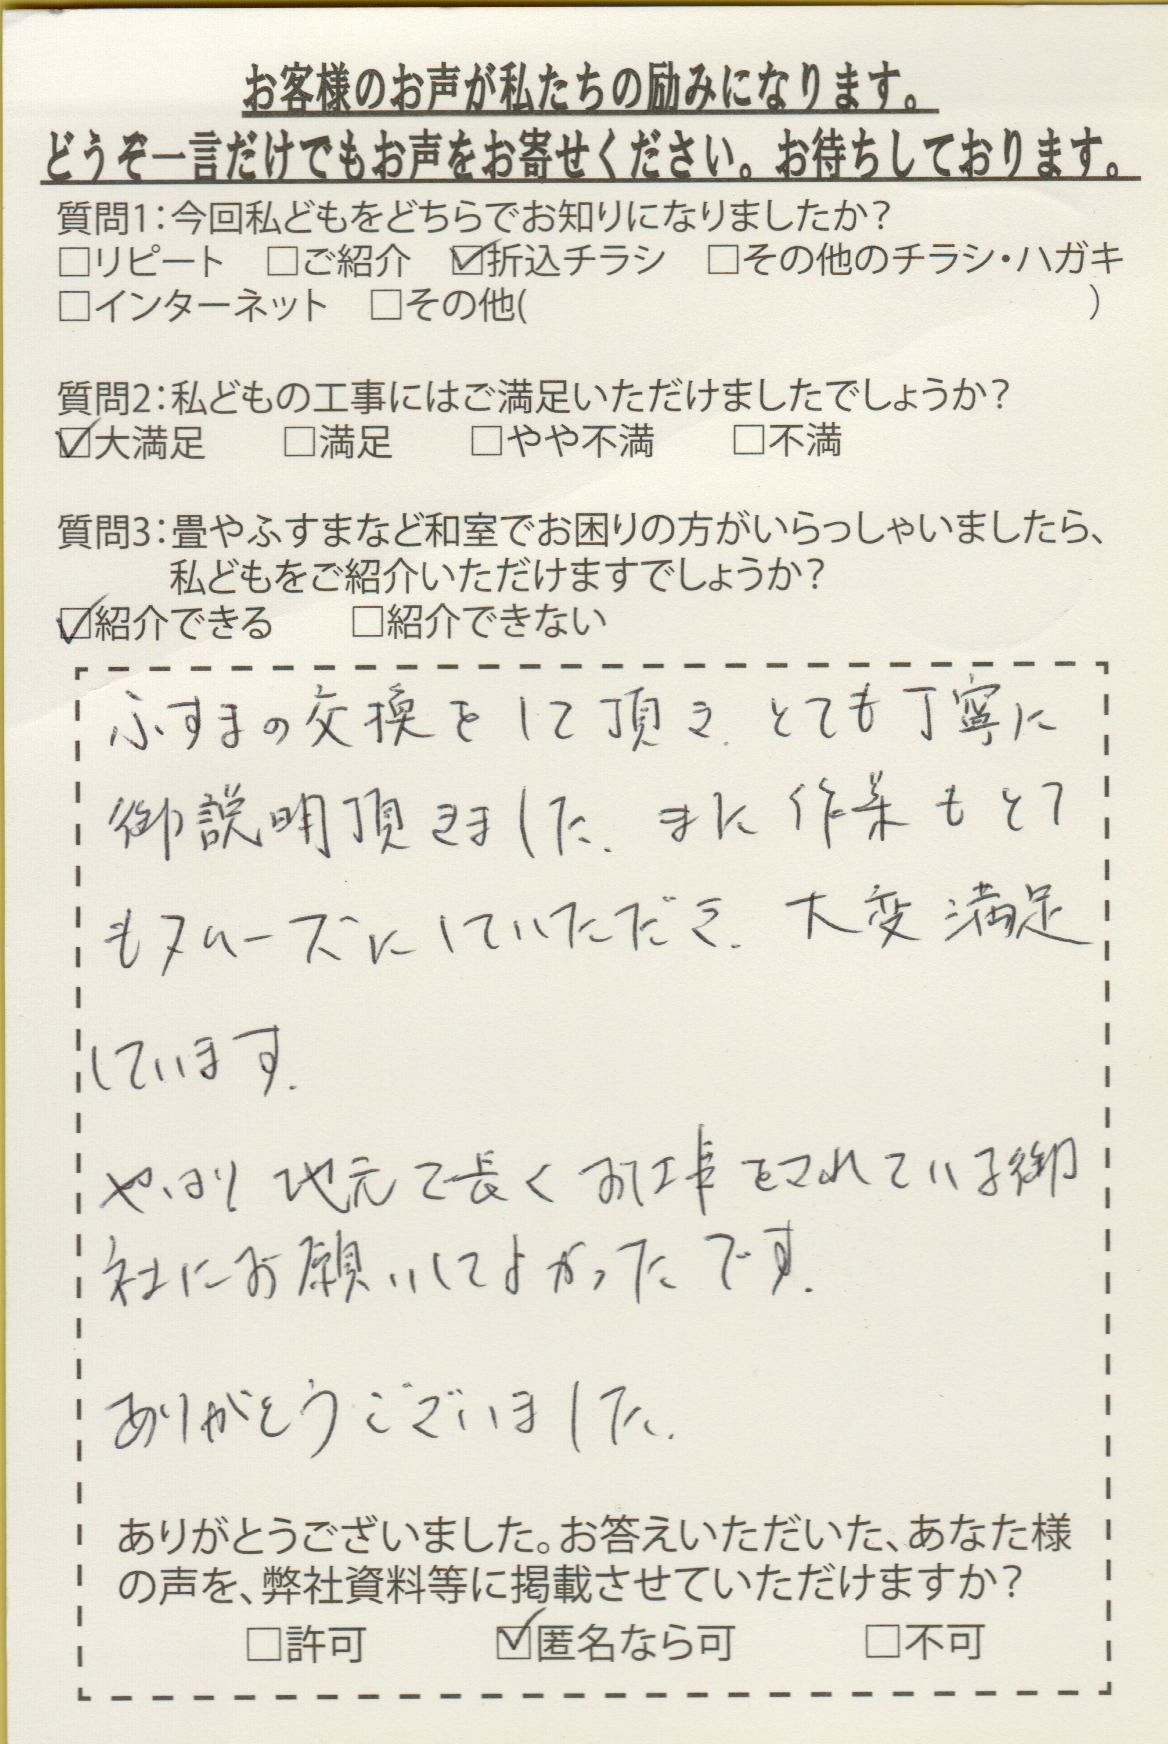 お客様のお声が私たちの励みになります。
どうぞ一言だけでもお声をお寄せください。お待ちしております。
質問1:今回私どもをどちらでお知りになりましたか?
□リピート □ご紹介 ☑折込チラシ □その他のチラシ・ハガキ
□インターネット □その他( )
質問2:私どもの工事にはご満足いただけましたでしょうか?
☑大満足 □満足 □やや不満 □不満
質問3:畳やふすまなど和室でお困りの方がいらっしゃいましたら、
私どもをご紹介いただけますでしょうか?
☑紹介できる □紹介できない
ふすまの交換をして頂き、とても丁寧に
御説明頂きました。また作業もとて
もスムーズにしていただき、大変満足
しています。
やはり地元で長くお仕事をされている御
社にお願いしてよかったです。
ありがとうございました。
ありがとうございました。お答えいただいた、あなた様
の声を、弊社資料等に掲載させていただけますか?
□許可 ☑匿名なら可 □不可